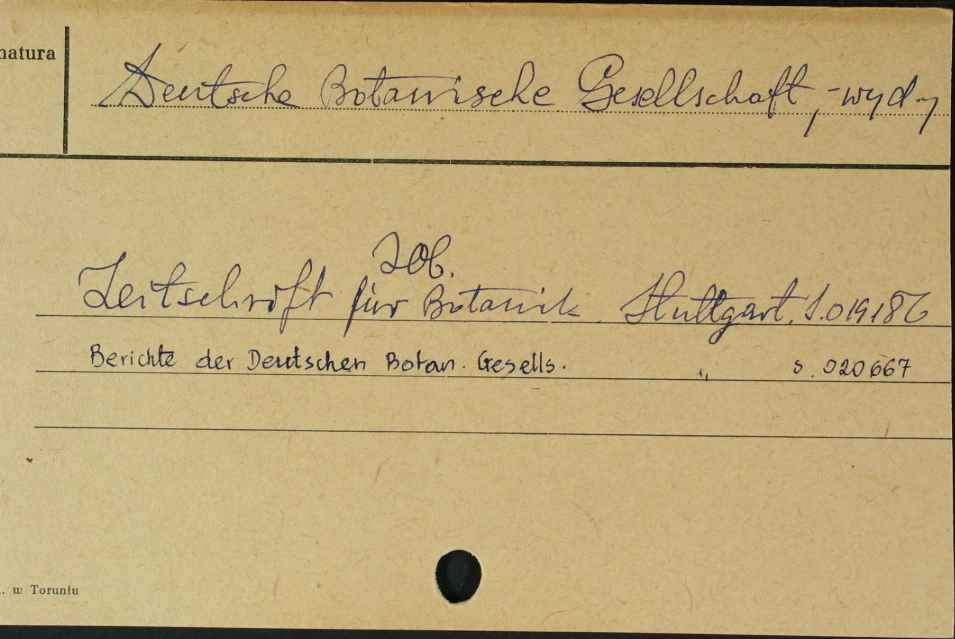 natura
Deutsche Botanische Gesellschaft, -wyd-
Zob.
Zeitschrift für Botanik. Stuttgart. S.019186
Berichte der Deutschen Botan. Gesells. " S.020667
. w Toruniu